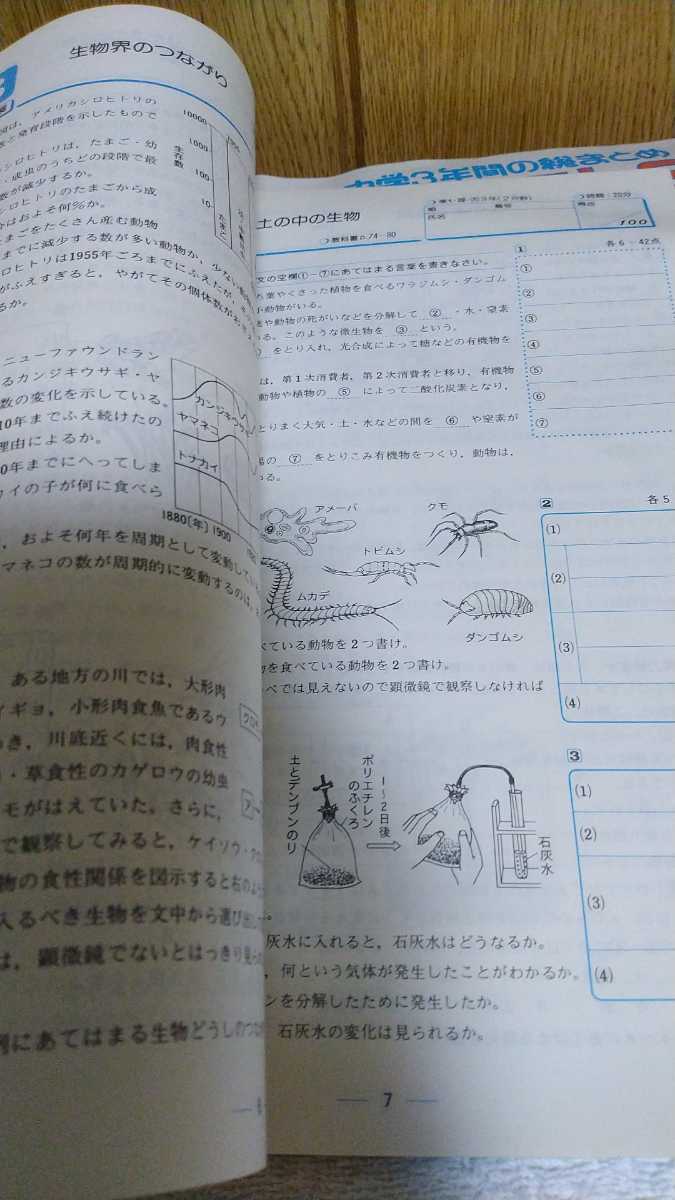 生物界のつながり
図は，アメリカシロヒトリの
数と発育段階を示したもので
シロヒトリは，たまご・幼
・成虫のうちどの段階で最
数が減少するか。
ロヒトリのたまごから成
合はおよそ何％か。
まごをたくさん産む動物
までに減少する数が多い動物か，少ない
ロヒトリは1955年ごろまでにふえたが，
がふえすぎると，やがてその個体数が
るか。
10000
1000
100
10
生存数
たまご
ニューファウンドラン
るカンジキウサギ・ヤ
数の変化を示している。
10年までふえ続けたの
理由によるか。
0年までにへってしま
カイの子が何に食べら
カンジキウサギ
ヤマネコ
トナカイ
1880(年) 1900
，およそ何年を周期として変動してい
マネコの数が周期的に変動するのは，
ある地方の川では，大形肉
イギョ，小形肉食魚であるウ
つき，川底近くには，肉食性
・草食性のカゲロウの幼虫
モがはえていた。さらに，
で観察してみると，ケイソウ・
物の食性関係を図示すると右のよう
入るべき生物を文中から選び出し
は，顕微鏡でないとはっきり見られ
例にあてはまる生物どうしのつな
中学3年間の総まとめ
土の中の生物
教科書p.74〜80
組
番号
氏名
時間：20分
得点
100
文の空欄①〜⑦にあてはまる言葉を書きなさい。
ち葉やくさった植物を食べるワラジムシ・ダンゴム
動物がいる。
や動物の死がいなどを分解して ② ・水・窒素
いる。このような微生物を ③ という。
をとり入れ，光合成によって糖などの有機物を
は，第1次消費者，第2次消費者と移り，有機物
動物や植物の ⑤ によって二酸化炭素となり，
とりまく大気・土・水などの間を ⑥ や窒素が
の ⑦ をとりこみ有機物をつくり，動物は，
いる。
1 各6－42点
①
②
③
④
⑤
⑥
⑦
アメーバ
クモ
トビムシ
ムカデ
ダンゴムシ
べている動物を2つ書け。
物を食べている動物を2つ書け。
べでは見えないので顕微鏡で観察しなければ
2 各5
(1)
(2)
(3)
(4)
土とデンプンのり
ポリエチレンのふくろ
1〜2日後
石灰水
3
(1)
(2)
(3)
(4)
灰水に入れると，石灰水はどうなるか。
，何という気体が発生したことがわかるか。
ンを分解したために発生したか。
石灰水の変化は見られるか。
7